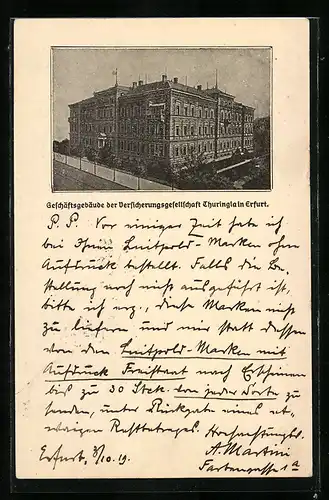 Geschäftsgebäude der Versicherungsgesellschaft Thuringia in Erfurt.
P. P. Vor einiger Zeit habe ich
bei Ihnen Luitpold-Marken ohne
Aufdruck bestellt. Falls die Be-
stellung noch nicht ausgeführt ist,
bitte ich erg., diese Marken nicht
zu liefern und mir statt dessen
von den Luitpold-Marken mit
Aufdruck Freistaat nach Erscheinen
bis zu 30 Stck. von jeder Sorte zu
senden, unter Rückgabe eines et-
waigen Restbetrages.
Hochachtungsv.
Erfurt, 8/10.19. A. Martini
Gartengasse 1a